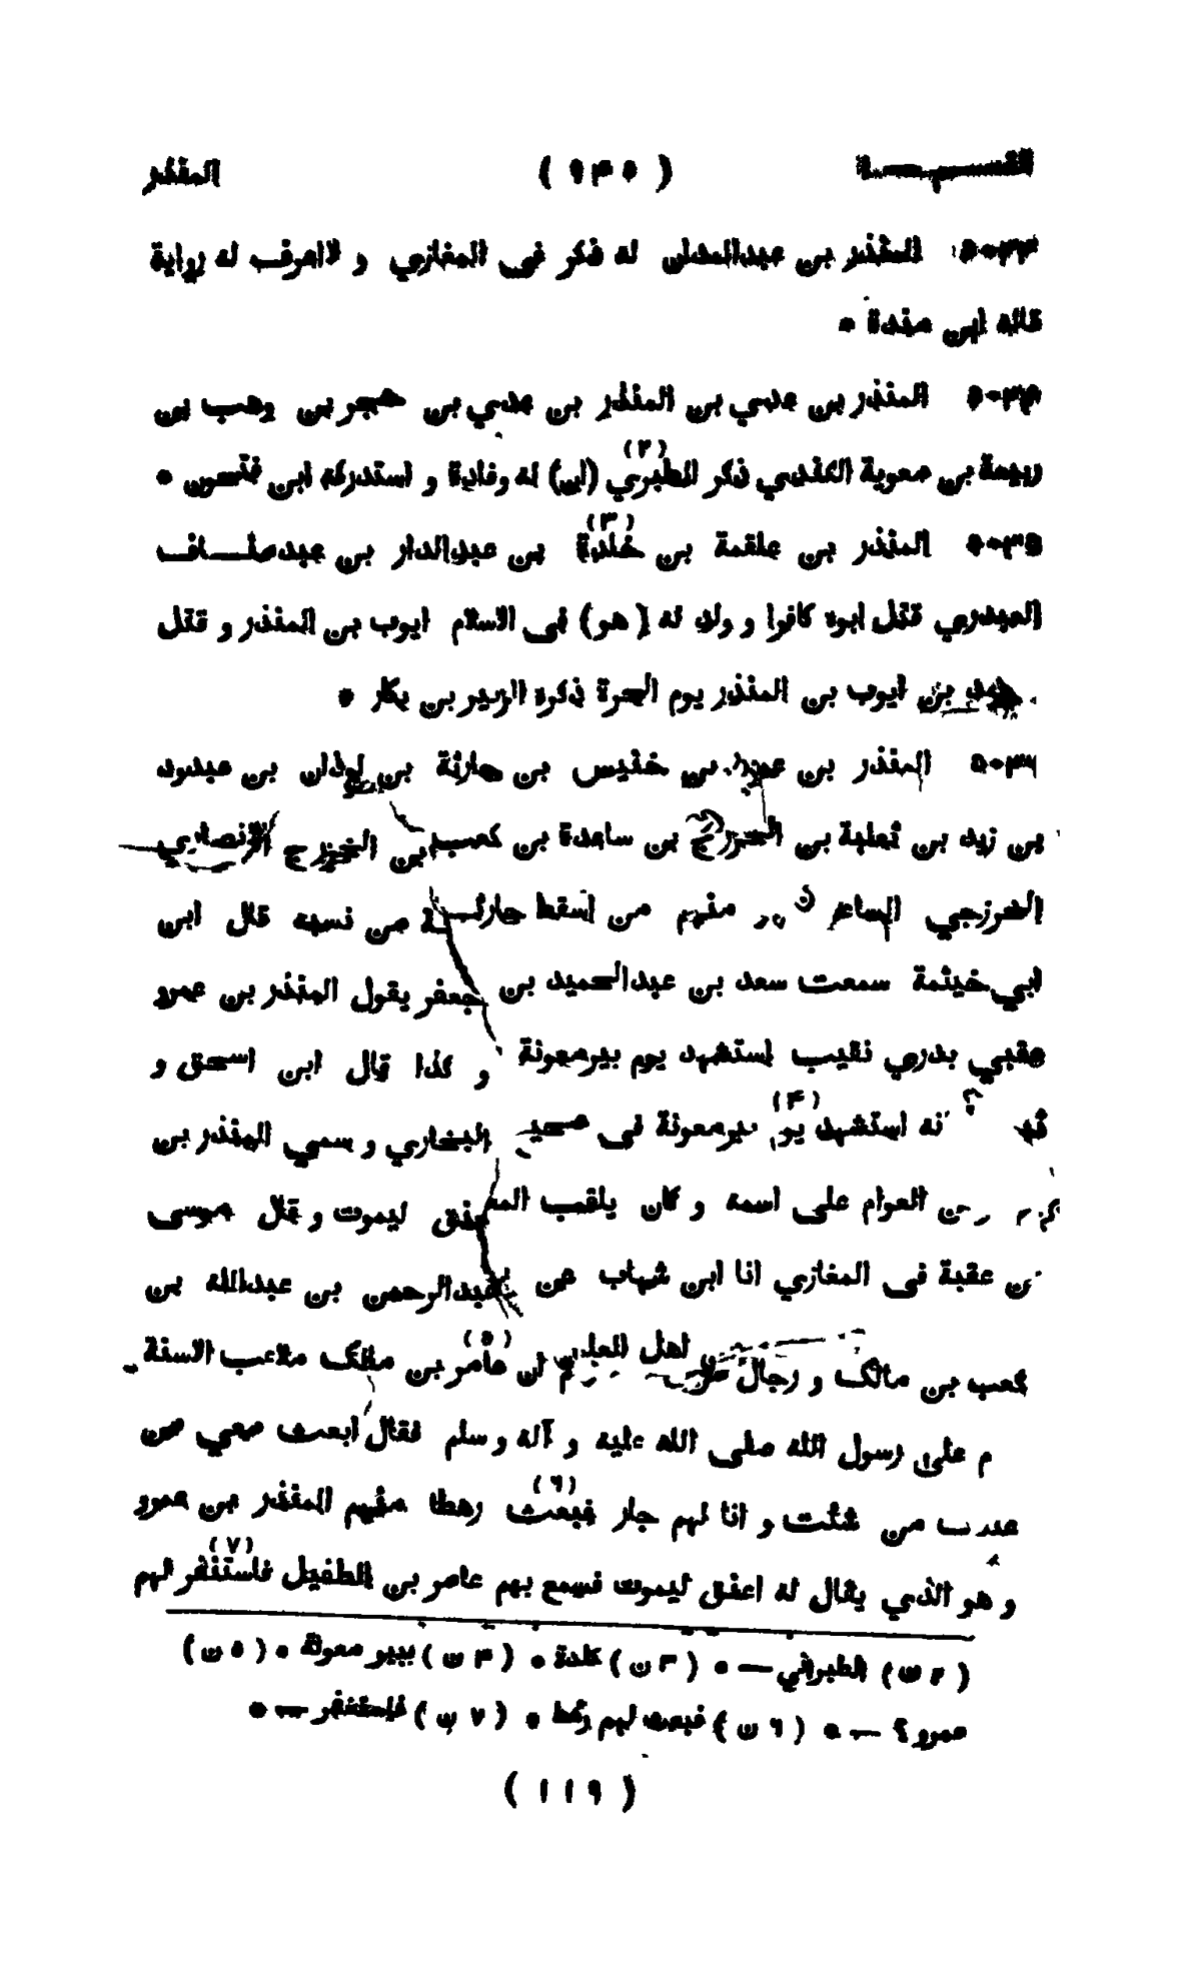 القسم ( ٩٤٥ ) المنذر
المنذر بن عبدالمدان له ذكر فى المغازي و لااعرف له رواية
قاله ابن مندة *
٥٠٣٤ المنذر بن عدي بن المنذر بن عدي بن حجر بن وهب بن
ربيعة بن معوية الكندي ذكر الطبري (٢) (ان) له وفادة و استدركه ابن فتحون *
٥٠٣٥ المنذر بن علقمة بن خلدة (٣) بن عبدالدار بن عبد منـــاف
العبدري قتل ابوه كافرا و ولد له ( هو ) فى الاسلام ايوب بن المنذر و قتل
بن ايوب بن المنذر يوم الحرة ذكره الزبير بن بكار *
٥٠٣٦ المنذر بن عمرو بن خنيس بن حارثة بن لوذان بن عبدود
بن زيد بن ثعلبة بن الخزرج بن ساعدة بن كعب بن الخزرج الانصاري
الخزرجي منهم من اسقط حارثـــة من نسبه قال ابن
ابي خيثمة سمعت سعد بن عبدالحميد بن جعفر يقول المنذر بن عمرو
عقبي بدري نقيب استشهد يوم بيرمعونة و كذا قال ابن اسحق و
نه استشهد يوم (٤) بيرمعونة فى صحيح البخاري و سمي المنذر بن
بن العوام على اسمه و كان يلقب المعنق ليموت و قال موسى
بن عقبة فى المغازي انا ابن شهاب عن عبدالرحمن بن عبدالله بن
كعب بن مالك و رجال من اهل العلم ان عامر (٥) بن مالك ملاعب الاسنة
م على رسول الله صلى الله عليه و آله و سلم فقال ابعث معي من
عندك من شئت و انا لهم جار فبعث (٦) رهطا منهم المنذر بن عمرو
و هو الذي يقال له اعنق ليموت فسمع بهم عامر بن الطفيل فاستنفر (٧) لهم
( ٢ ن ) الطبراني — * ( ٣ ن ) كلدة * ( ٤ ن ) ببير معونة * ( ٥ ن )
عمرو ؟ — * ( ٦ ن ) فبعث لهم رهط * ( ٧ ن ) فاستنفر — *
( ١١٩ )